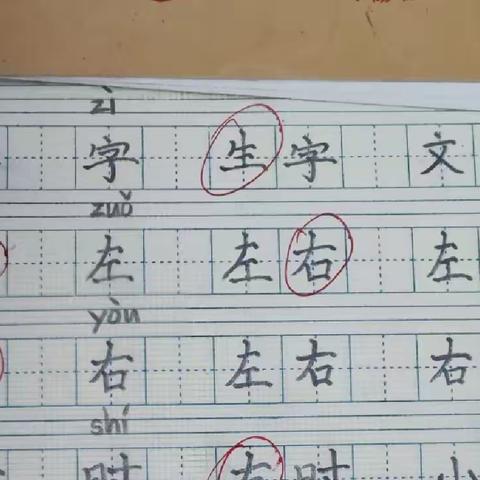 zì
字 生字 文
zuǒ
左 左右 左
yòu
右 左右 右
shí
时 时 小